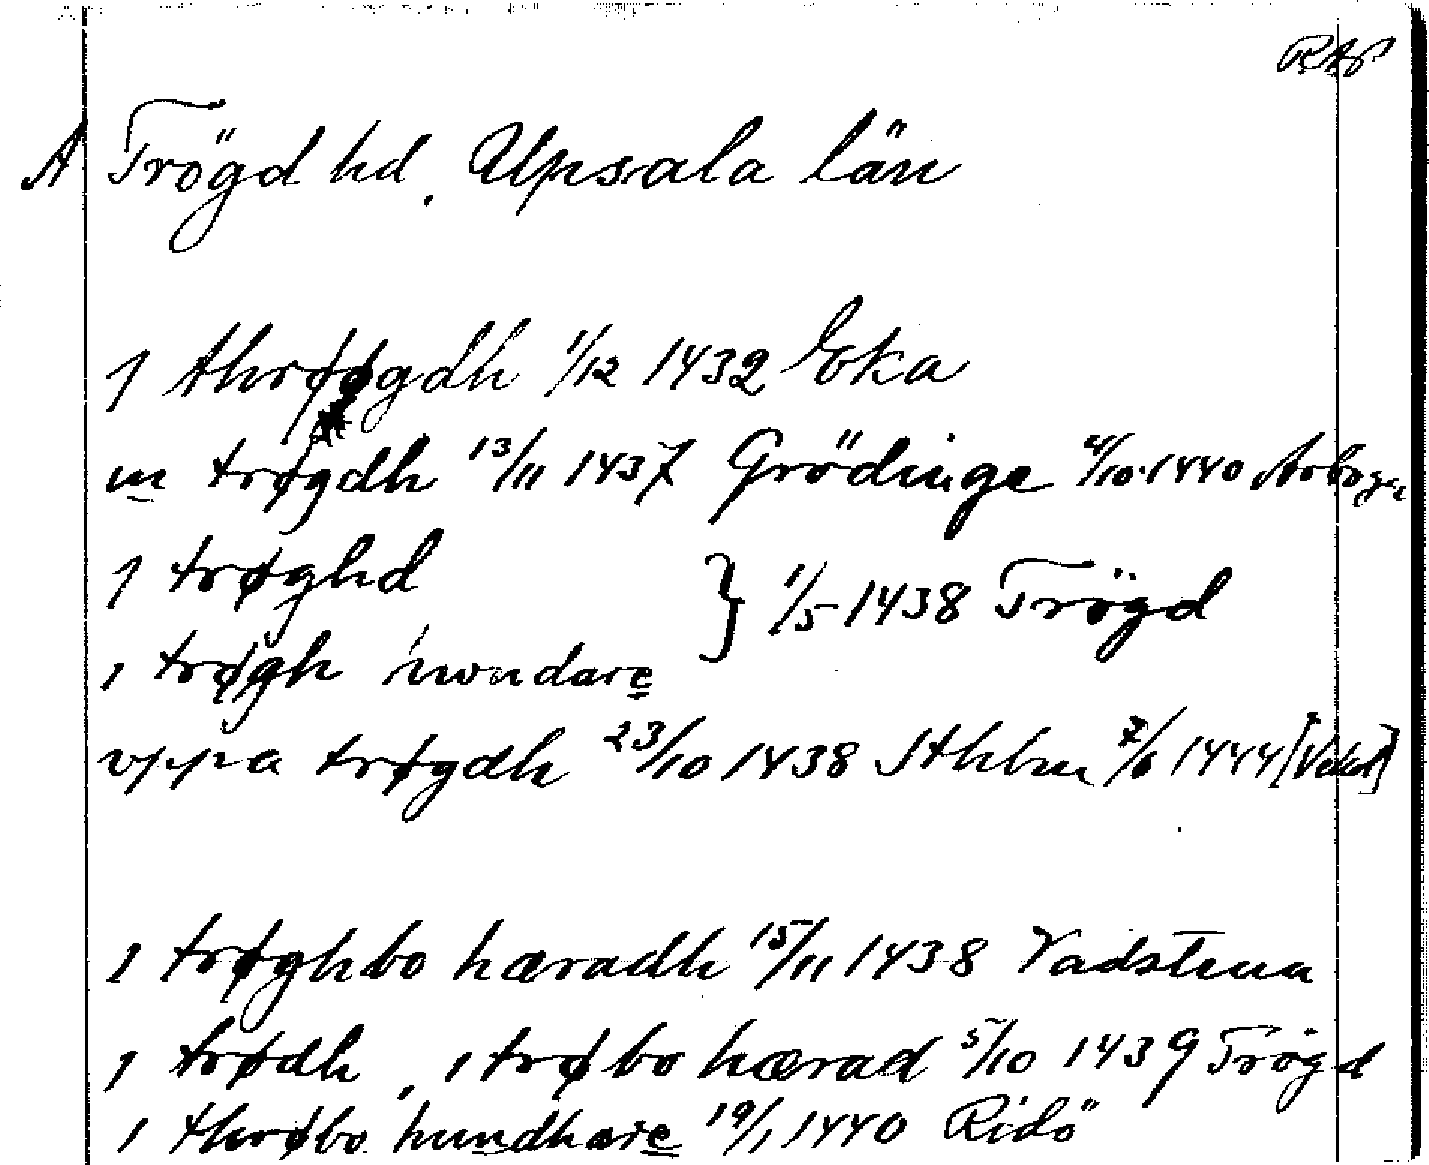 RAP
A Trögd hd. Upsala län
j thrøøgdh 1/12 1432 Eka
in trøgdh 13/11 1437 Grödinge 4/10 1440 Arboga
j trøghd } 1/5 1438 Trögd
i trøgh hvndare
vppa trøgdh 23/10 1438 Sthlm 7/6 1444
i trøghbo hæradh 15/11 1438 Vadstena
j trødh, i trøbo hærad 5/10 1439 Trögd
i thrøbo hundhare 19/1 1440 Ridö